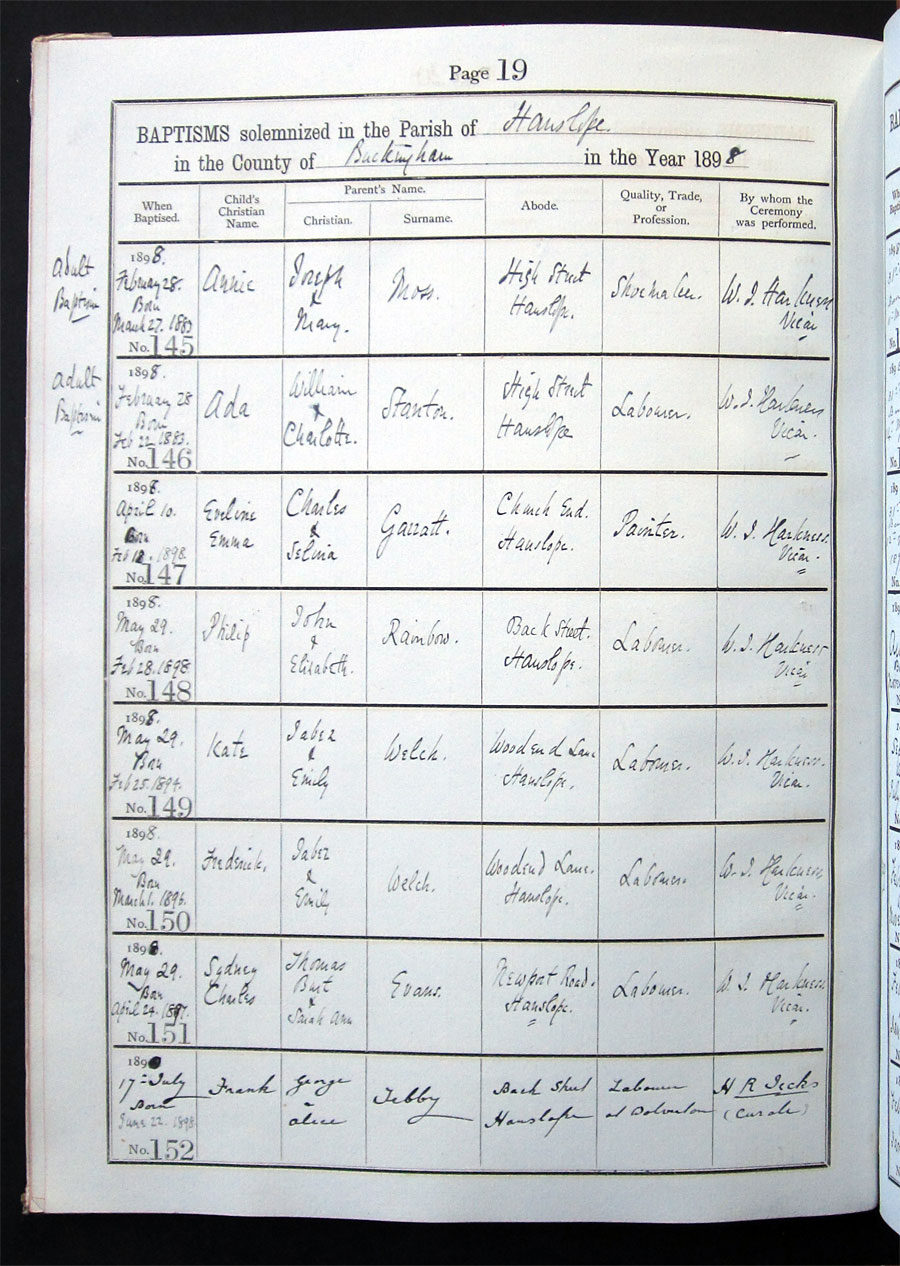 Page 19
BAPTISMS solemnized in the Parish of Hanslope.
in the County of Buckingham in the Year 1898
When Baptised.
Child's Christian Name.
Parent's Name.
Christian.
Surname.
Abode.
Quality, Trade, or Profession.
By whom the Ceremony was performed.
Adult
Baptism
1898.
February 28.
Born
March 27. 1883
No. 145
Annie
Joseph
&
Mary.
Moss.
High Street
Hanslope.
Shoemaker.
W. J. Harkness
Vicar
Adult
Baptism
1898.
February 28
Born
Feb 22. 1883.
No. 146
Ada
William
&
Charlotte.
Stanton.
High Street
Hanslope
Labourer.
W. J. Harkness
Vicar.
1898.
April 10.
Born
Feb 12. 1898.
No. 147
Eveline
Emma
Charles
&
Selina
Garratt.
Church End.
Hanslope.
Painter.
W. J. Harkness.
Vicar.
1898.
May 29.
Born
Feb 28. 1898.
No. 148
Philip
John
&
Elizabeth.
Rainbow.
Back Street.
Hanslope.
Labourer.
W. J. Harkness
Vicar
1898.
May 29.
Born
Feb 25. 1894.
No. 149
Kate
Jabez
&
Emily
Welch.
Woodend Lane
Hanslope.
Labourer.
W. J. Harkness.
Vicar.
1898.
May 29.
Born
March 1. 1896.
No. 150
Frederick.
Jabez
&
Emily
Welch.
Woodend Lane.
Hanslope.
Labourer.
W. J. Harkness
Vicar.
1898.
May 29.
Born
April 24. 1897.
No. 151
Sydney
Charles
Thomas
Burt
&
Sarah Ann
Evans.
Newport Road.
Hanslope.
Labourer.
W. J. Harkness
Vicar.
1898
17 = July
Born
June 22. 1898
No. 152
Frank
George
Alice
Tebby
Back Street
Hanslope
Labourer
at Wolverton
H R Jecks
(Curate)